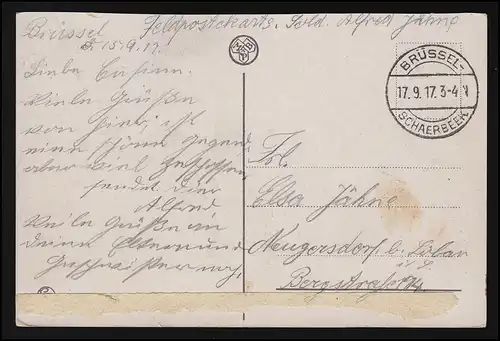 Feldpostkarte. Sold. Alfred Jähne
Brüssel
d. 15.9.17.
Liebe Cusine.
Viele Grüße
von hier, ist
eine schöne Gegend
aber viel zerschossen
sendet dier
Alfred
Viele Grüße an
deine Eltern und
Geschwister noch.
BRÜSSEL-
17.9.17. 3-4 N
SCHAERBEEK
Frl.
Elsa Jähne
Neugersdorf b. Löbau
i. S.
Bergstraße